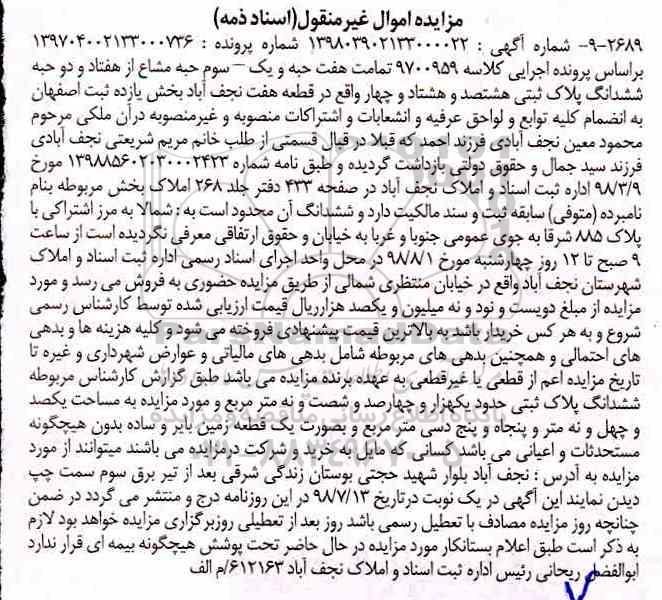 مزایده اموال غیرمنقول(اسناد ذمه)
۹-۲۶۸۹- شماره آگهی : ۱۳۹۸۰۳۹۰۲۱۳۳۰۰۰۰۲۲ شماره پرونده : ۱۳۹۷۰۴۰۰۲۱۳۳۰۰۰۷۳۶
براساس پرونده اجرایی کلاسه ۹۷۰۰۹۵۹ تمامت هفت حبه و یک – سوم حبه مشاع از هفتاد و دو حبه
ششدانگ پلاک ثبتی هشتصد و هشتاد و چهار واقع در قطعه هفت نجف آباد بخش یازده ثبت اصفهان
به انضمام کلیه توابع و لواحق عرفیه و انشعابات و اشتراکات منصوبه و غیرمنصوبه درآن ملکی مرحوم
محمود معین نجف آبادی فرزند احمد که قبلا در قبال قسمتی از طلب خانم مریم شریعتی نجف آبادی
فرزند سید جمال و حقوق دولتی بازداشت گردیده و طبق نامه شماره ۱۳۹۸۸۵۶۰۲۰۳۰۰۰۲۴۲۳ مورخ
۹۸/۳/۹ اداره ثبت اسناد و املاک نجف آباد در صفحه ۴۳۳ دفتر جلد ۲۶۸ املاک بخش مربوطه بنام
نامبرده (متوفی) سابقه ثبت و سند مالکیت دارد و ششدانگ آن محدود است به : شمالا به مرز اشتراکی با
پلاک ۸۸۵ شرقا به جوی عمومی جنوبا و غربا به خیابان و حقوق ارتفاقی معرفی نگردیده است از ساعت
۹ صبح تا ۱۲ روز چهارشنبه مورخ ۹۸/۸/۱ در محل واحد اجرای اسناد رسمی اداره ثبت اسناد و املاک
شهرستان نجف آباد واقع در خیابان منتظری شمالی از طریق مزایده حضوری به فروش می رسد و مورد
مزایده از مبلغ دویست و نود و نه میلیون و یکصد هزارریال قیمت ارزیابی شده توسط کارشناس رسمی
شروع و به هر کس خریدار باشد به بالاترین قیمت پیشنهادی فروخته می شود و کلیه هزینه ها و بدهی
های احتمالی و همچنین بدهی های مربوطه شامل بدهی های مالیاتی و عوارض شهرداری و غیره تا
تاریخ مزایده اعم از قطعی یا غیرقطعی به عهده برنده مزایده می باشد طبق گزارش کارشناس مربوطه
ششدانگ پلاک ثبتی حدود یکهزار و چهارصد و شصت و نه متر مربع و مورد مزایده به مساحت یکصد
و چهل و نه متر و پنجاه و پنج دسی متر مربع و بصورت یک قطعه زمین بایر و ساده بدون هیچگونه
مستحدثات و اعیانی می باشد کسانی که مایل به خرید و شرکت درمزایده می باشند میتوانند از مورد
مزایده به آدرس : نجف آباد بلوار شهید حجتی بوستان زندگی شرقی بعد از تیر برق سوم سمت چپ
دیدن نمایند این آگهی در یک نوبت درتاریخ ۹۸/۷/۱۳ در این روزنامه درج و منتشر می گردد در ضمن
چنانچه روز مزایده مصادف با تعطیل رسمی باشد روز بعد از تعطیلی روزبرگزاری مزایده خواهد بود لازم
به ذکر است طبق اعلام بستانکار مورد مزایده در حال حاضر تحت پوشش هیچگونه بیمه ای قرار ندارد
ابوالفضل ریحانی رئیس اداره ثبت اسناد و املاک نجف آباد ۶۱۲۱۶۳/م الف